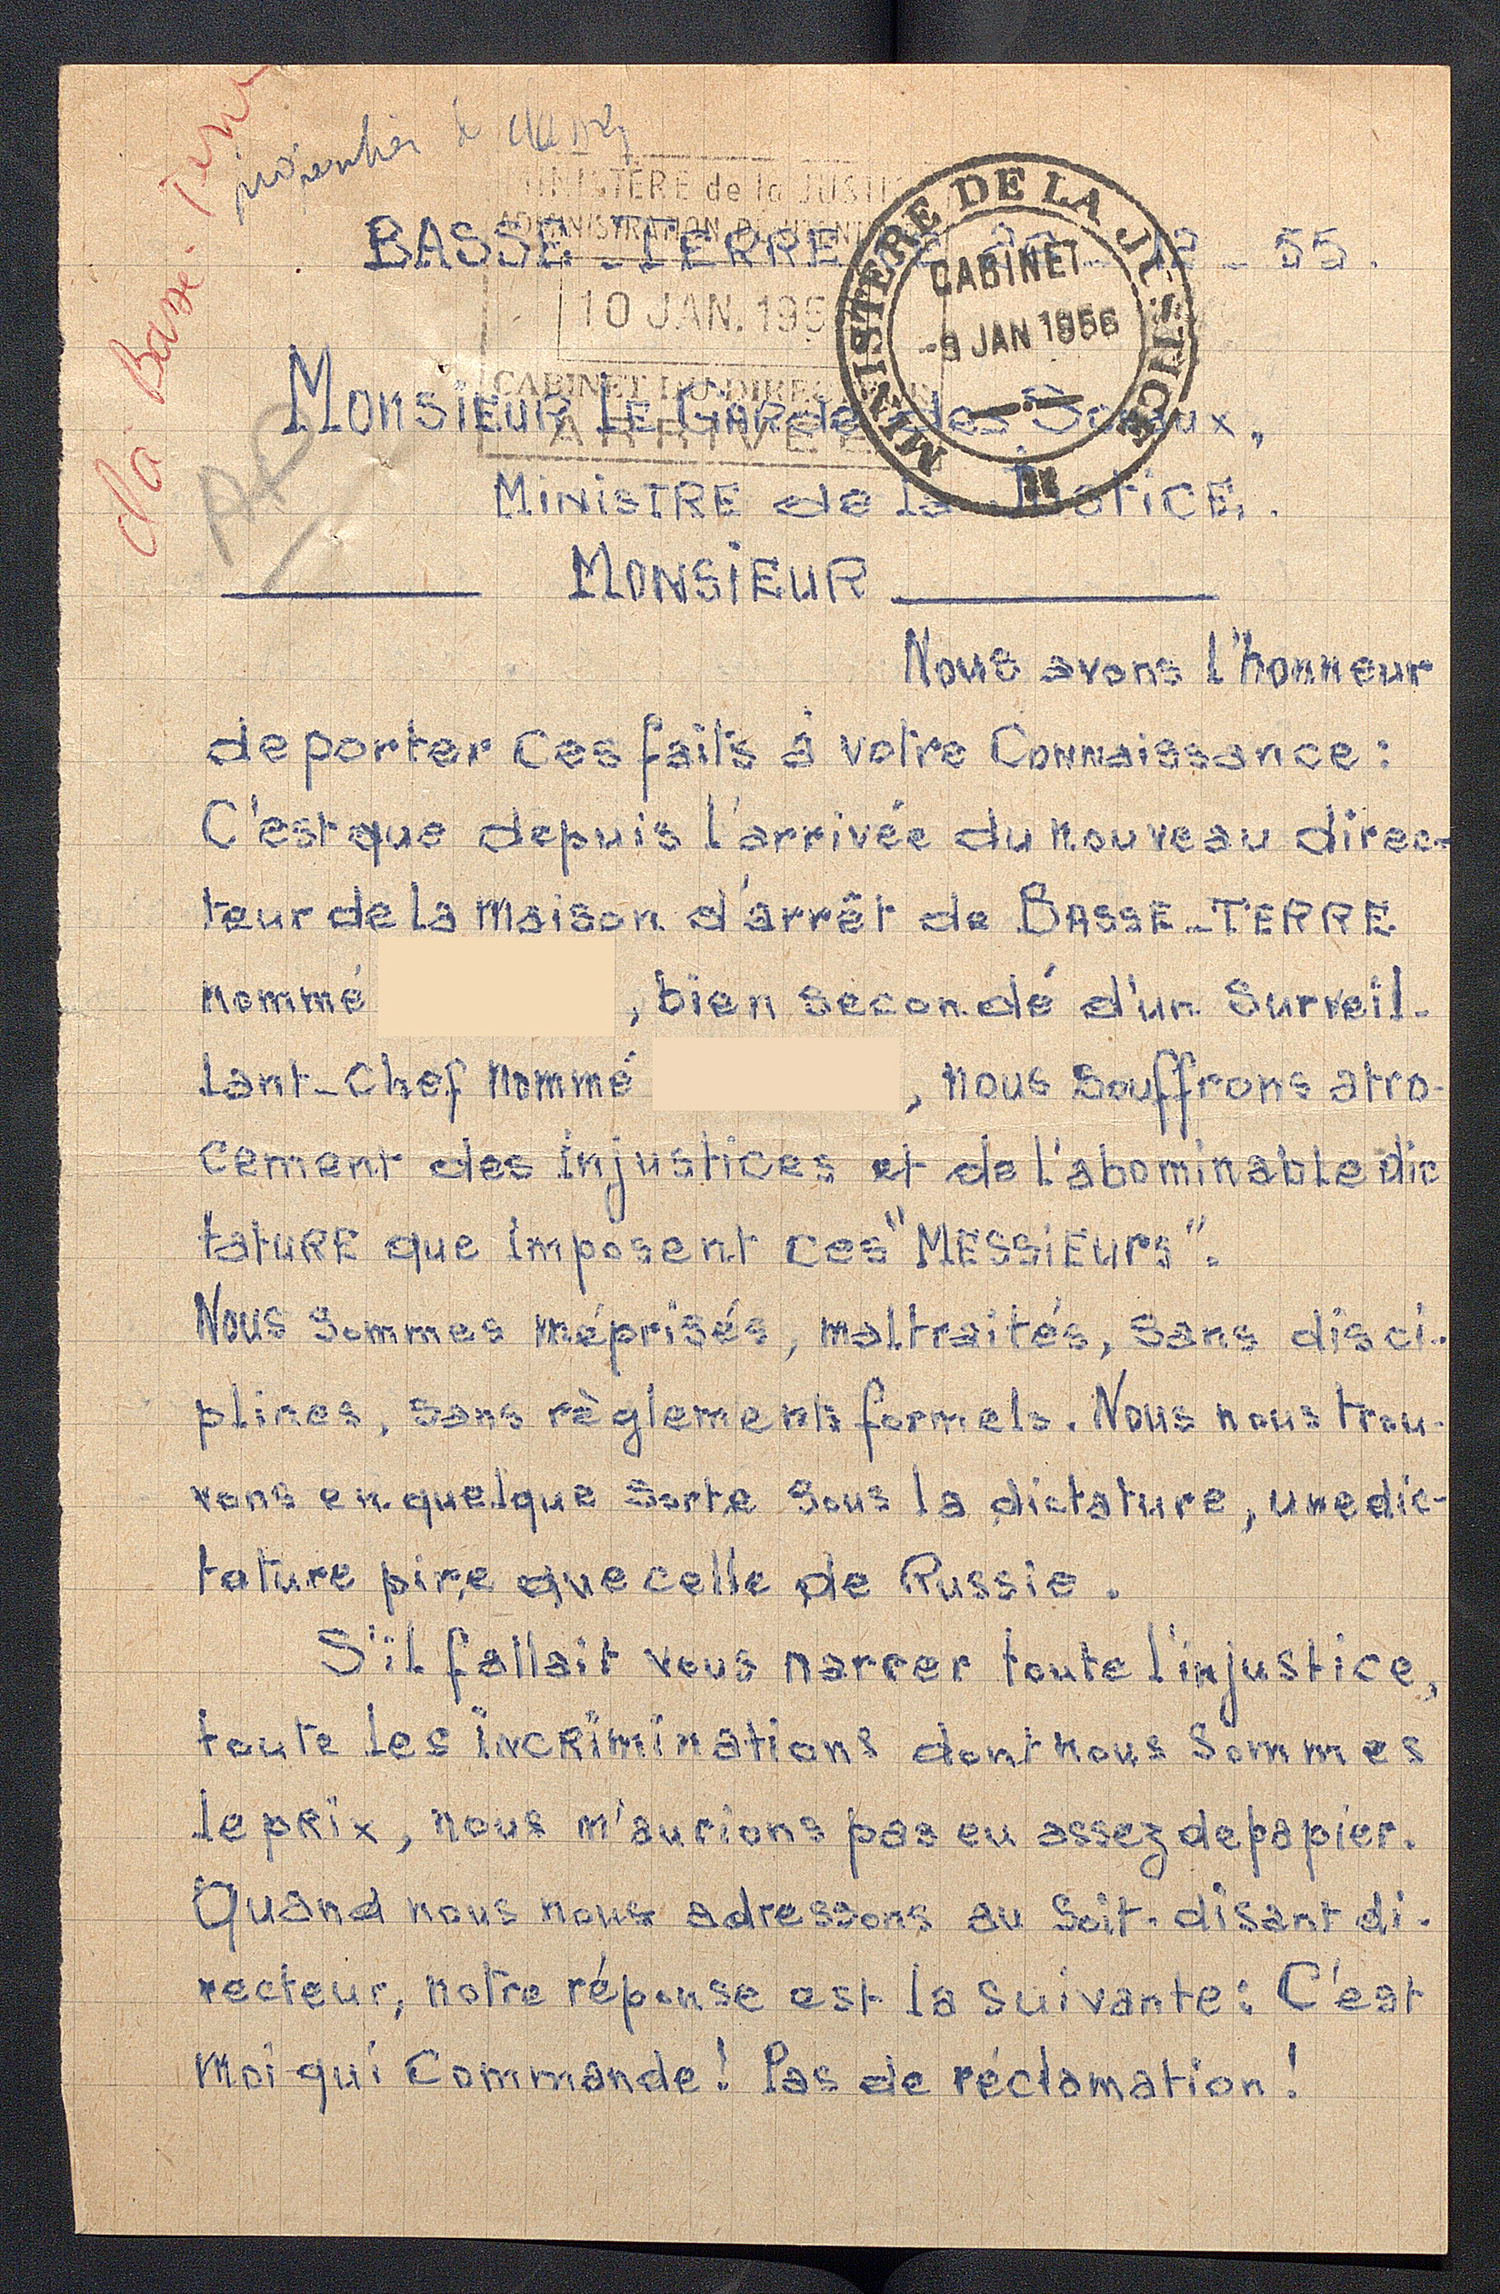 Ma Basse-Terre
AP
MINISTÈRE de la JUSTI
ADMINISTRATION PÉNITENT
10 JAN. 195
CABINET DU DIRECTEUR
ARRIVÉE
MINISTERE DE LA JUSTICE
CABINET
-9 JAN 1956
BASSE-TERRE 12-55.
Monsieur Le Garde des Sceaux,
Ministre de la Justice.
Monsieur
Nous avons l'honneur
de porter ces faits à votre Connaissance :
C'est que depuis l'arrivée du nouveau direc-
teur de la maison d'arrêt de BASSE-TERRE
nommé , bien secondé d'un Surveil-
lant-Chef nommé , nous souffrons atro-
cement des injustices et de l'abominable dic
tature que imposent ces "MESSIEURS".
Nous sommes méprisés, maltraités, sans disci-
plines, sans règlements formels. Nous nous trou-
vons en quelque sorte sous la dictature, une dic-
tature pire que celle de Russie.
S'il fallait vous narrer toute l'injustice,
toute les incriminations dont nous sommes
le prix, nous n'aurions pas eu assez de papier.
Quand nous nous adressons au soit-disant di-
recteur, notre réponse est la suivante : C'est
moi qui Commande ! Pas de réclamation !